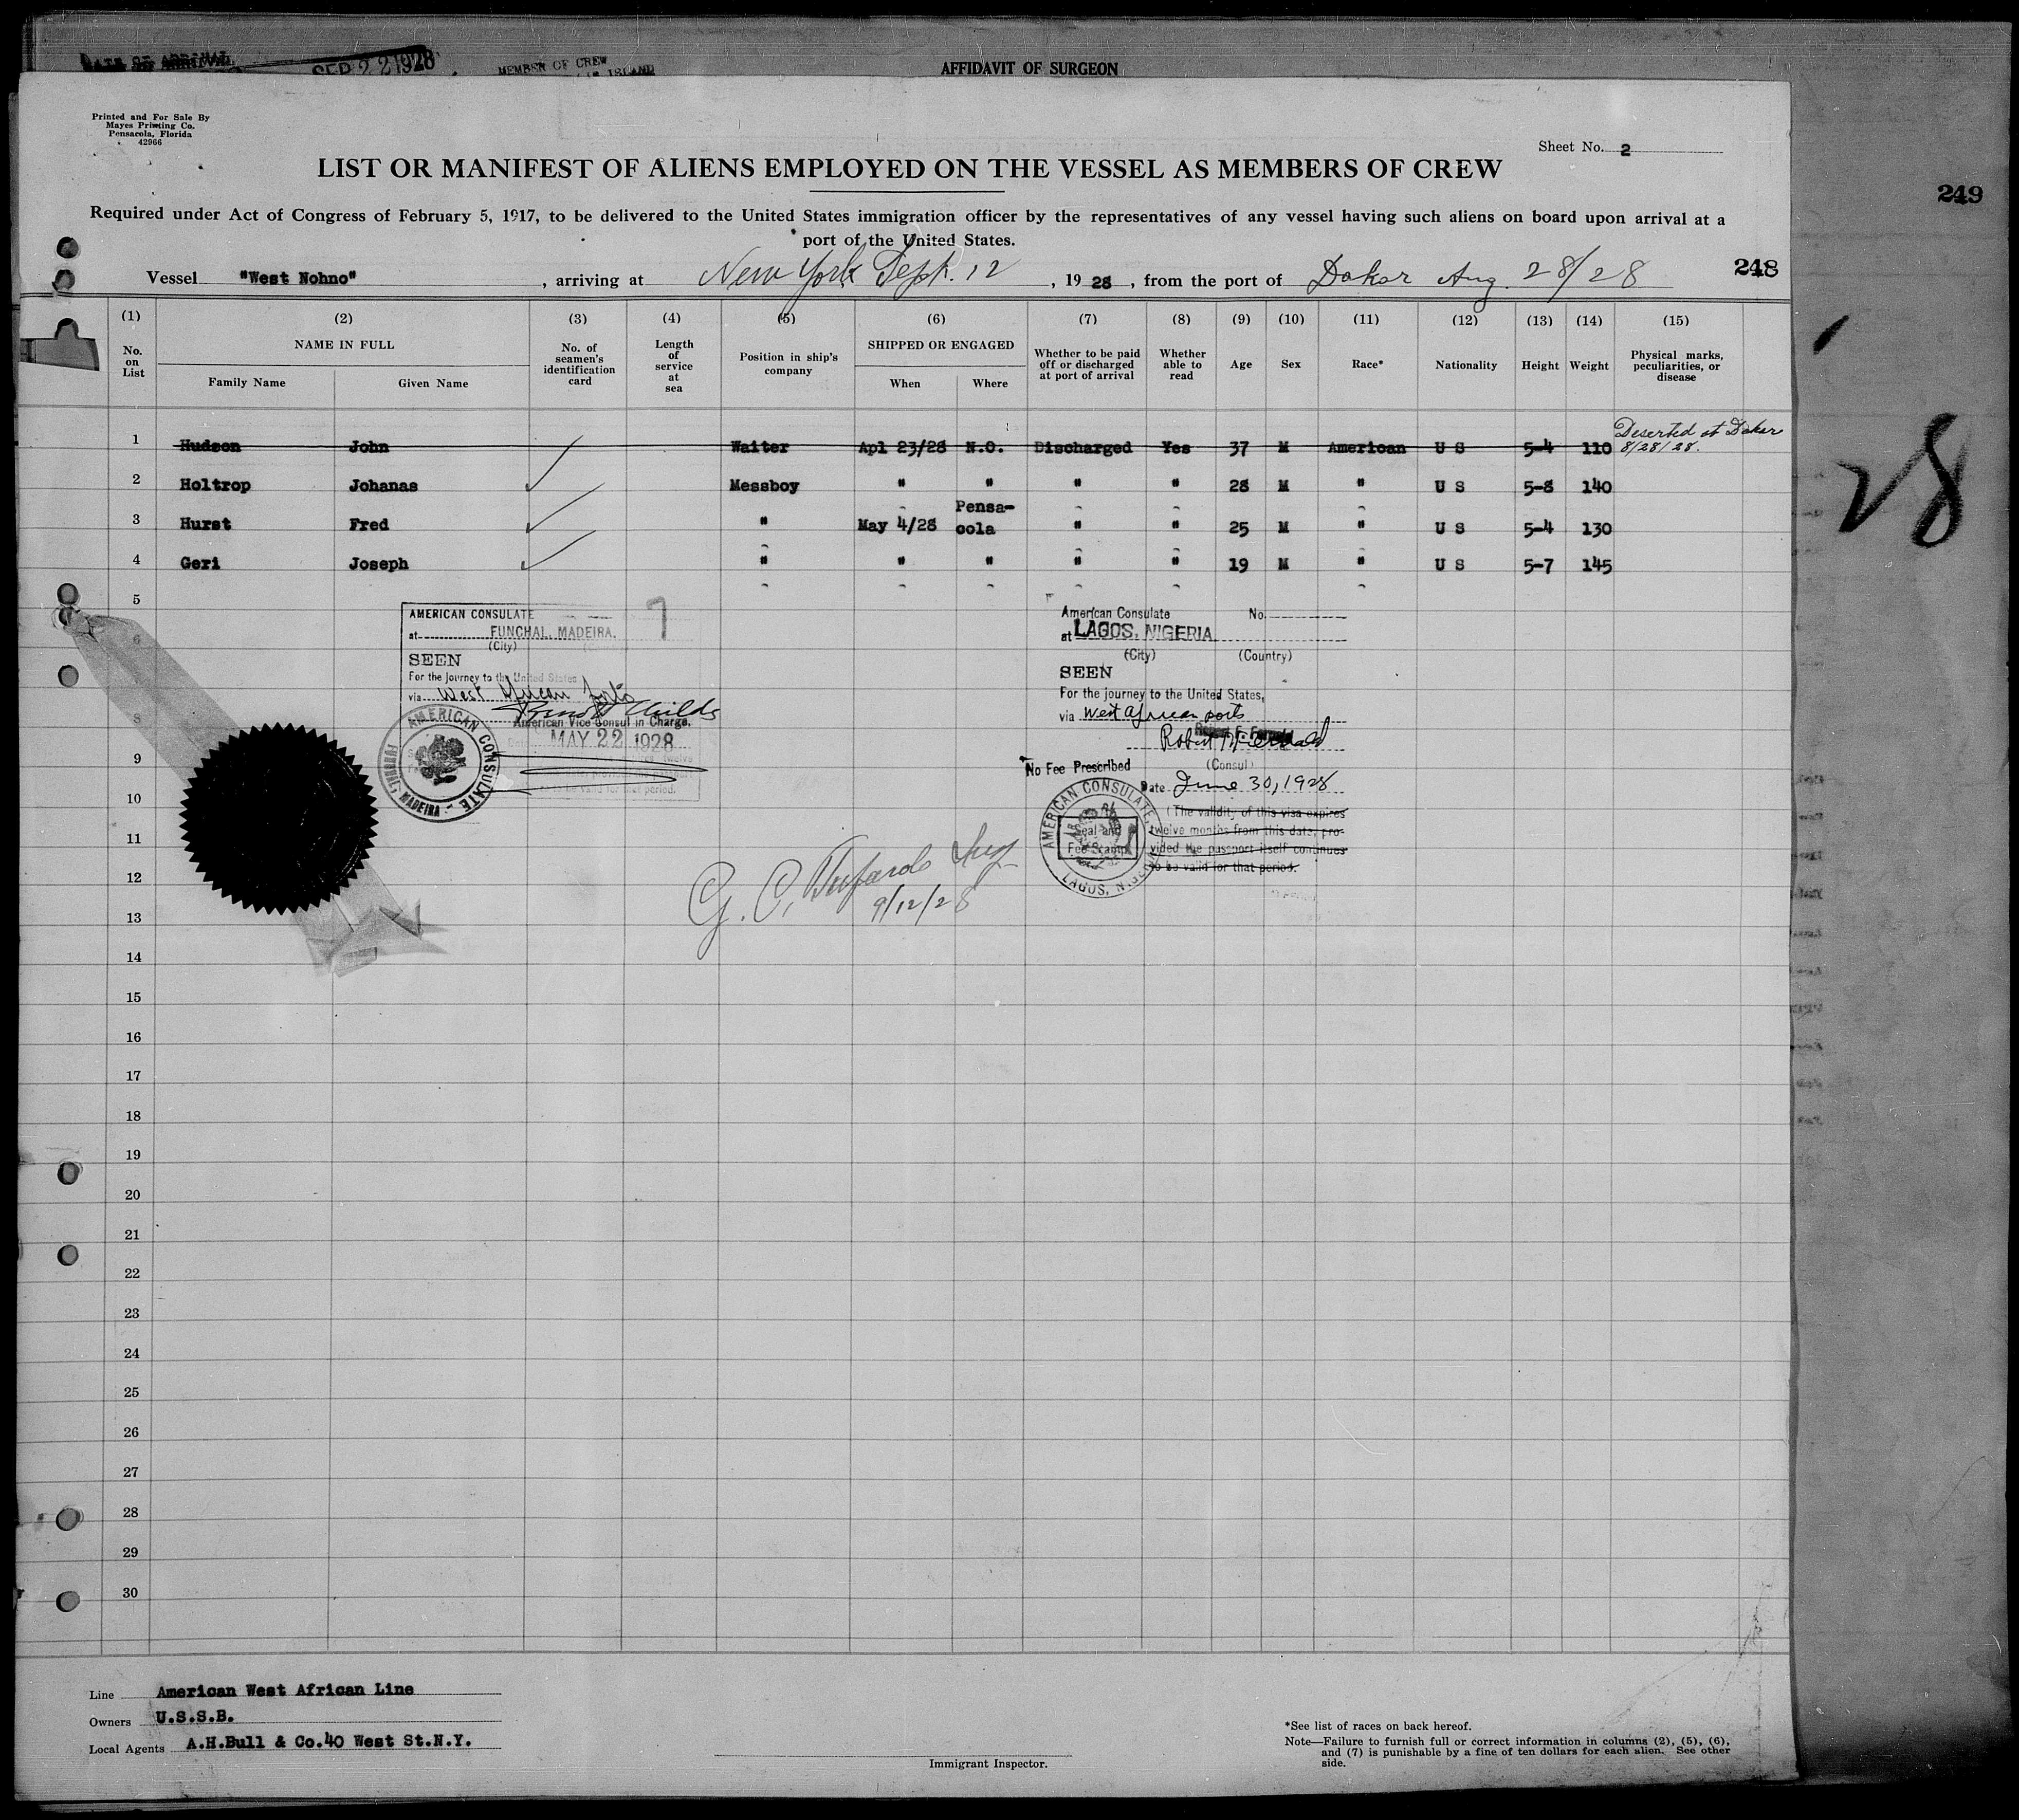 DATE OF ARRIVAL SEP 22 1928 MEMBER OF CREW
AFFIDAVIT OF SURGEON
Printed and For Sale By
Mayes Printing Co.
Pensacola, Florida
42966
Sheet No. 2
249
LIST OR MANIFEST OF ALIENS EMPLOYED ON THE VESSEL AS MEMBERS OF CREW
Required under Act of Congress of February 5, 1917, to be delivered to the United States immigration officer by the representatives of any vessel having such aliens on board upon arrival at a
port of the United States.
Vessel "West Nohno" , arriving at New York Sept. 12 , 1928 , from the port of Dakar Aug. 28/28 248
(1) (2) (3) (4) (5) (6) (7) (8) (9) (10) (11) (12) (13) (14) (15)
No. on List NAME IN FULL Family Name Given Name No. of seamen's identification card Length of service at sea Position in ship's company SHIPPED OR ENGAGED When Where Whether to be paid off or discharged at port of arrival Whether able to read Age Sex Race* Nationality Height Weight Physical marks, peculiarities, or disease
1 Hudson John Waiter Apl 23/28 N.O. Discharged Yes 37 M American U S 5-4 110 Deserted at Dakar 8/28/28.
2 Holtrop Johanas Messboy " " " " 28 M " U S 5-8 140
3 Hurst Fred " May 4/28 Pensa-cola " " 25 M " U S 5-4 130
4 Geri Joseph " " " " " 19 M " U S 5-7 145
28
5
6
8
9
10
11
12
13
14
15
16
17
18
19
20
21
22
23
24
25
26
27
28
29
30
AMERICAN CONSULATE
7
at FUNCHAL, MADEIRA.
(City)
SEEN
For the journey to the United States
via West African ports
Childs
American Vice Consul in Charge.
MAY 22 1928
AMERICAN CONSULATE
MADEIRA
American Consulate No.
at LAGOS, NIGERIA
(City) (Country)
SEEN
For the journey to the United States,
via West African ports
Robert
No Fee Prescribed (Consul)
Date June 30, 1928
(The validity of this visa expires
twelve months from this date, pro-
vided the passport itself continues
to be valid for that period.
AMERICAN CONSULATE,
Seal and
Fee Stamp
LAGOS, NIGERIA
G. C.
9/12/28
Line American West African Line
Owners U.S.S.B.
Local Agents A.H.Bull & Co.40 West St.N.Y.
Immigrant Inspector.
*See list of races on back hereof.
Note—Failure to furnish full or correct information in columns (2), (5), (6),
and (7) is punishable by a fine of ten dollars for each alien. See other
side.